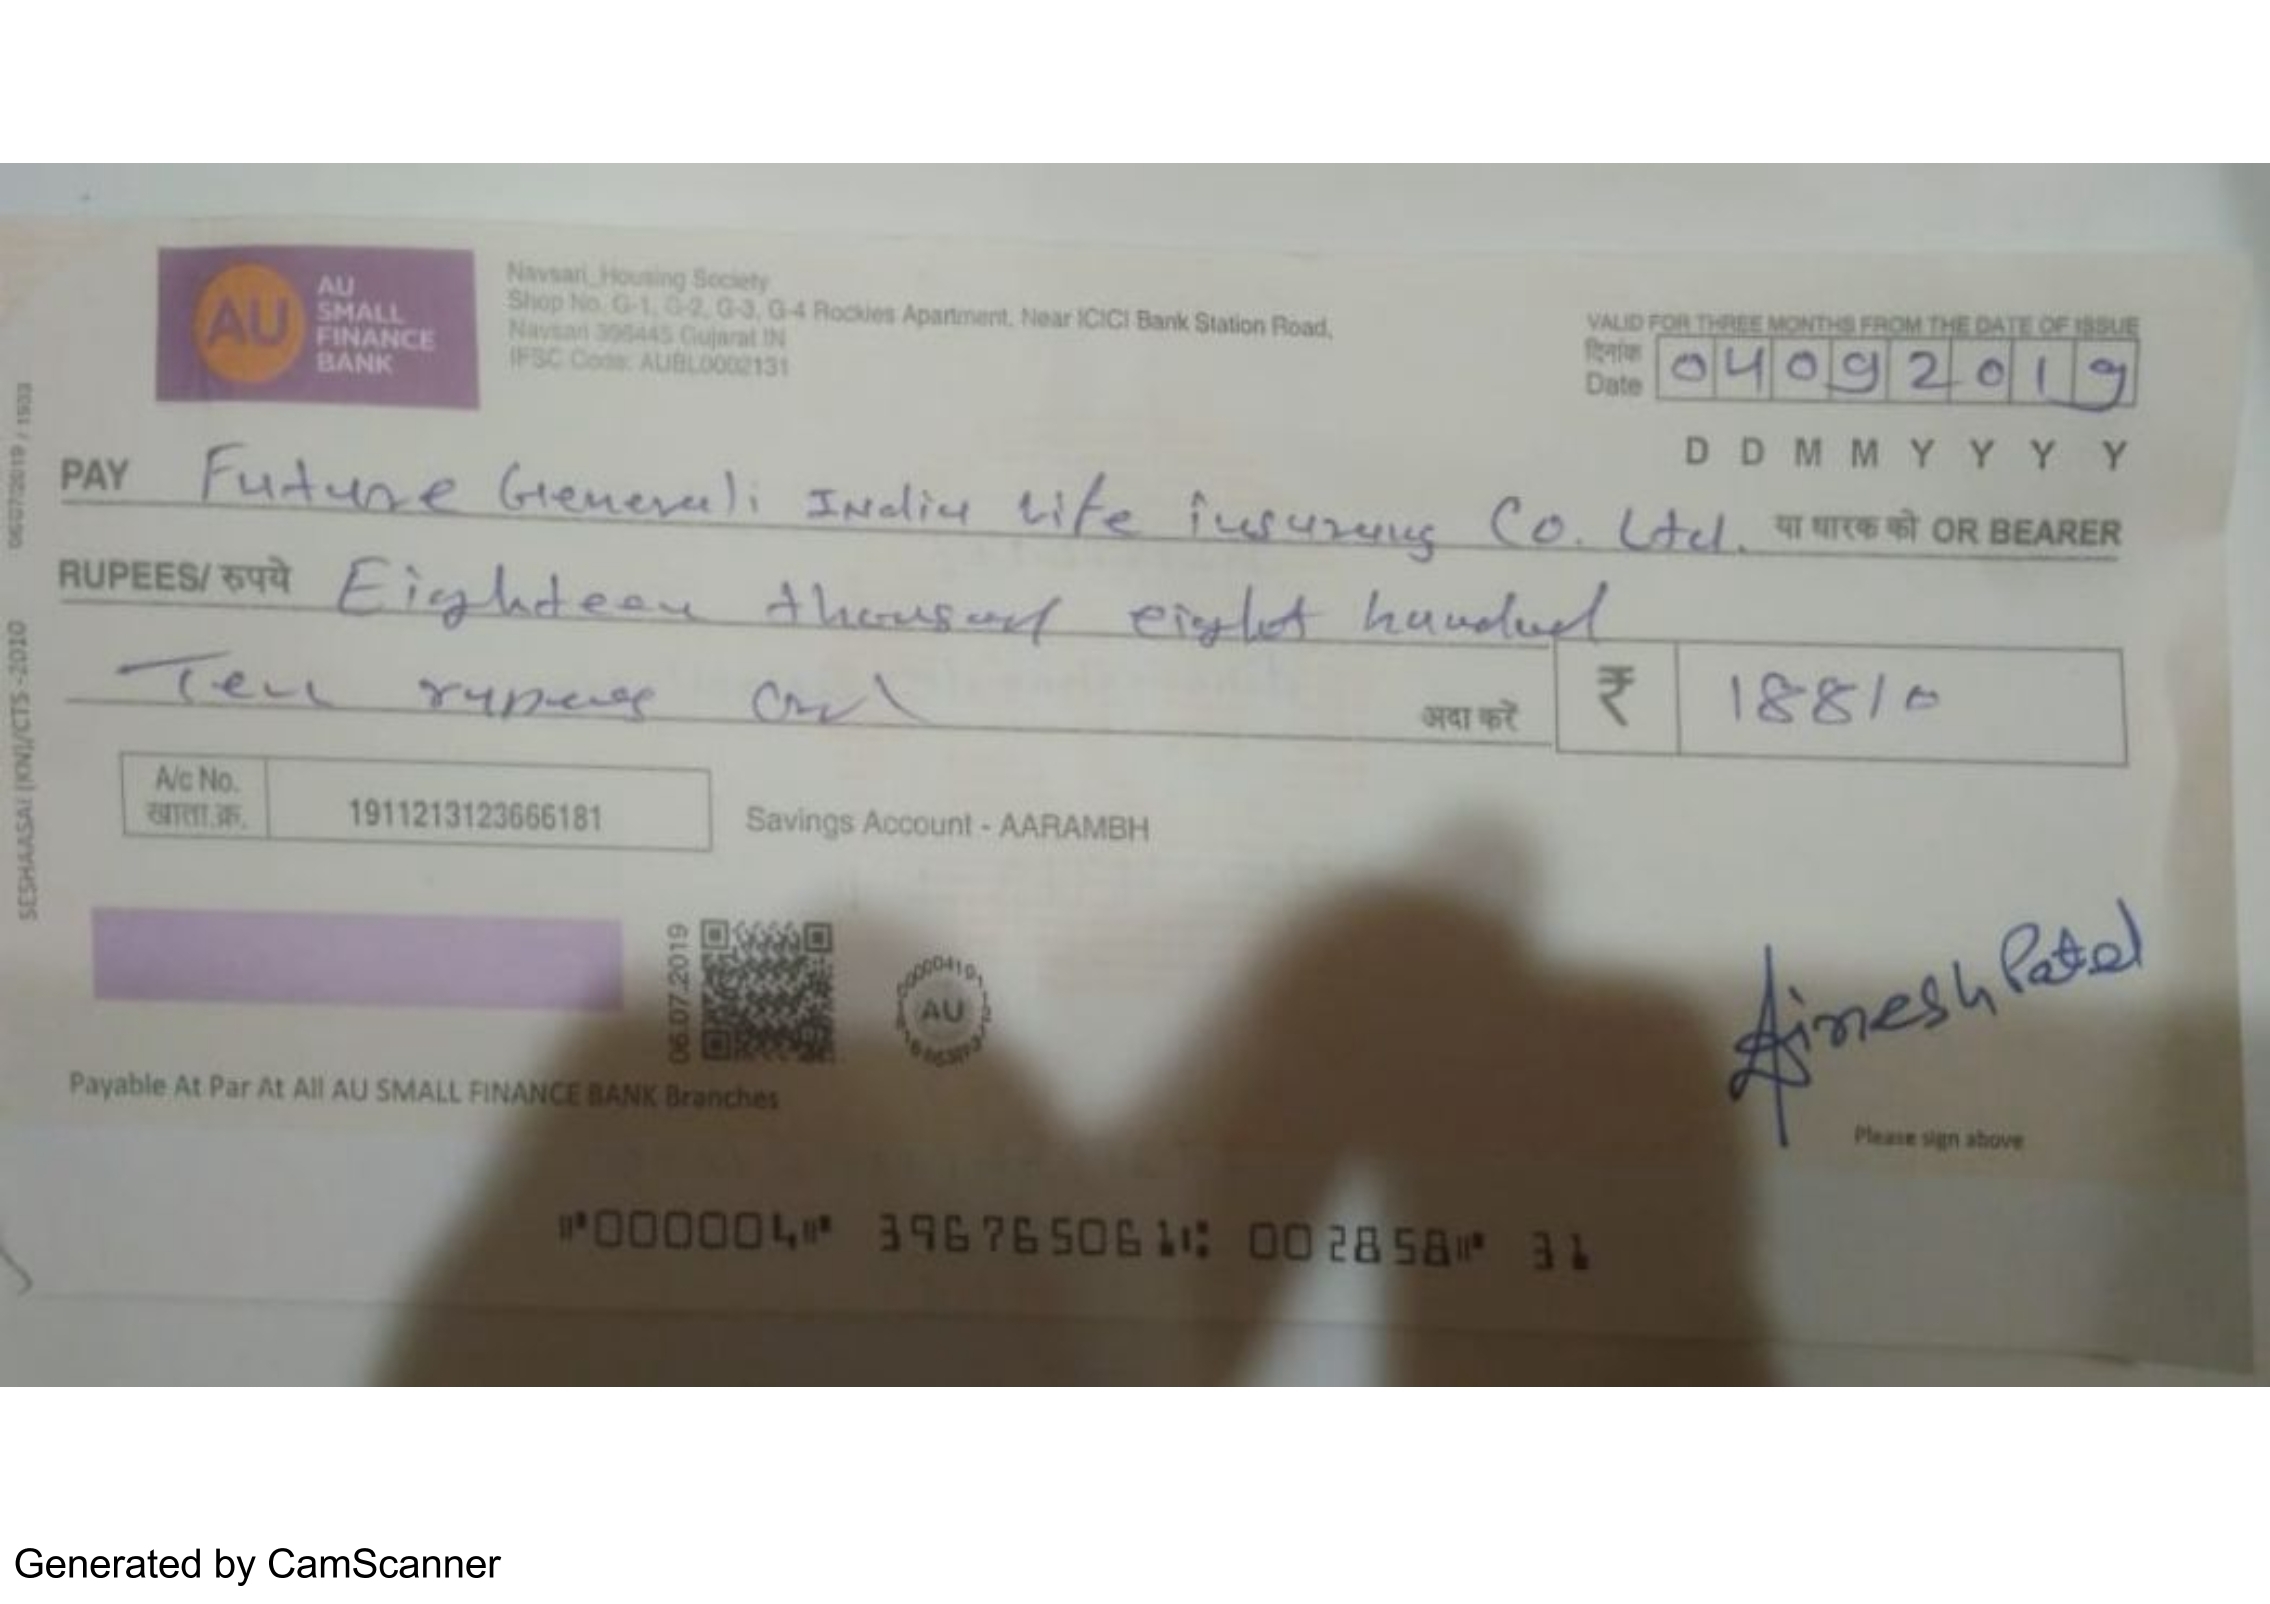 AU
AU
SMALL
FINANCE
BANK
Navsari_Housing Society
Shop No. G-1, G-2, G-3, G-4 Rockies Apartment, Near ICICI Bank Station Road,
Navsari 396445 Gujarat IN
IFSC Code: AUBL0002131
VALID FOR THREE MONTHS FROM THE DATE OF ISSUE
दिनांक
Date 04092019
D D M M Y Y Y Y
PAY Future Generali India Life Insurung Co. Ltd. या धारक को OR BEARER
RUPEES/ रुपये Eighteen thousand eight hundred
Ten rupees अदा करें ₹ 18810
A/c No.
खाता.क्र. 1911213123666181 Savings Account - AARAMBH
06.07.2019
AU
Payable At Par At All AU SMALL FINANCE BANK Branches
Jimesh Patel
Please sign above
⑈000004⑈ 396765061⑆ 002858⑈ 31
SESHAASAI (KN)/CTS-2010 06/07/2019 / 1933
Generated by CamScanner